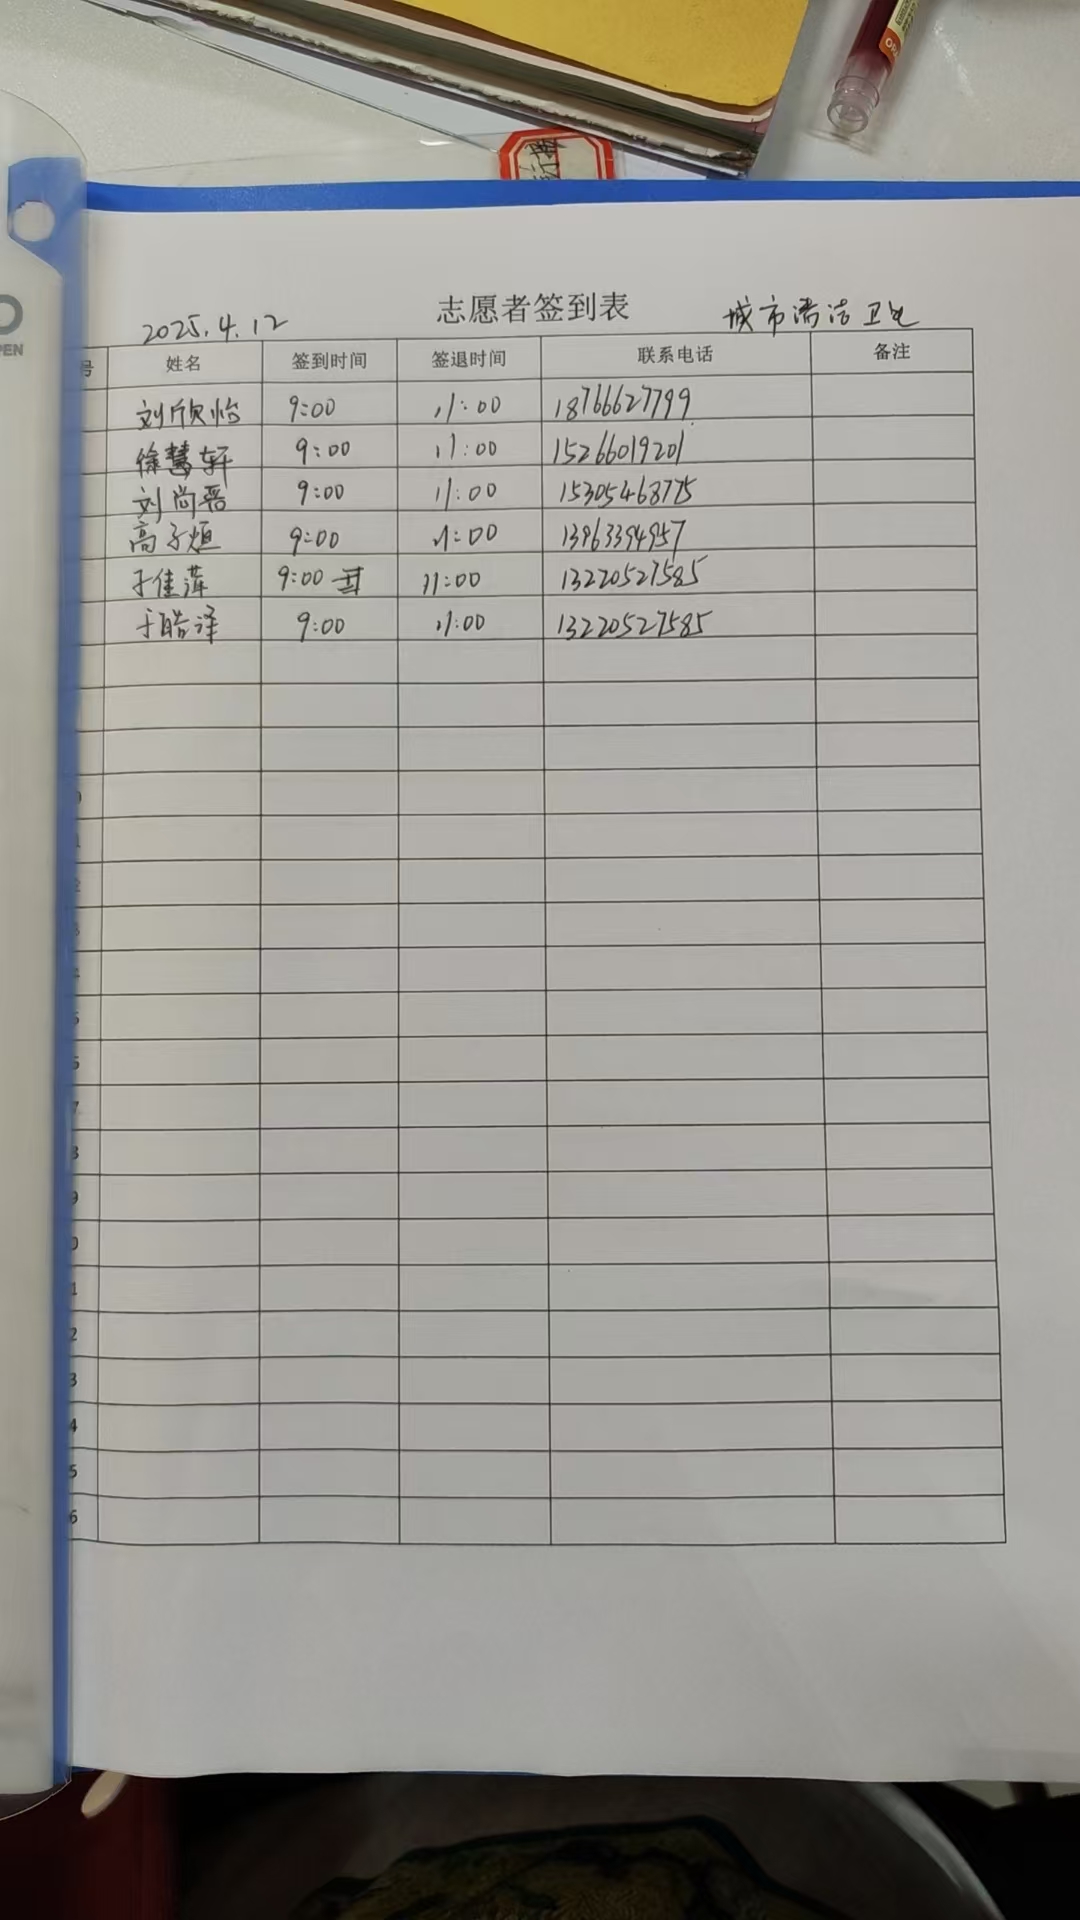 志愿者签到表
2025.4.12 城市清洁卫生
号 姓名 签到时间 签退时间 联系电话 备注
刘欣怡 9:00 11:00 18766627799
徐慧轩 9:00 11:00 15266019201
刘尚晋 9:00 11:00 15305468775
高子烜 9:00 11:00 13963394957
于佳萍 9:00 11:00 13220527585
于皓泽 9:00 11:00 13220527585
PEN